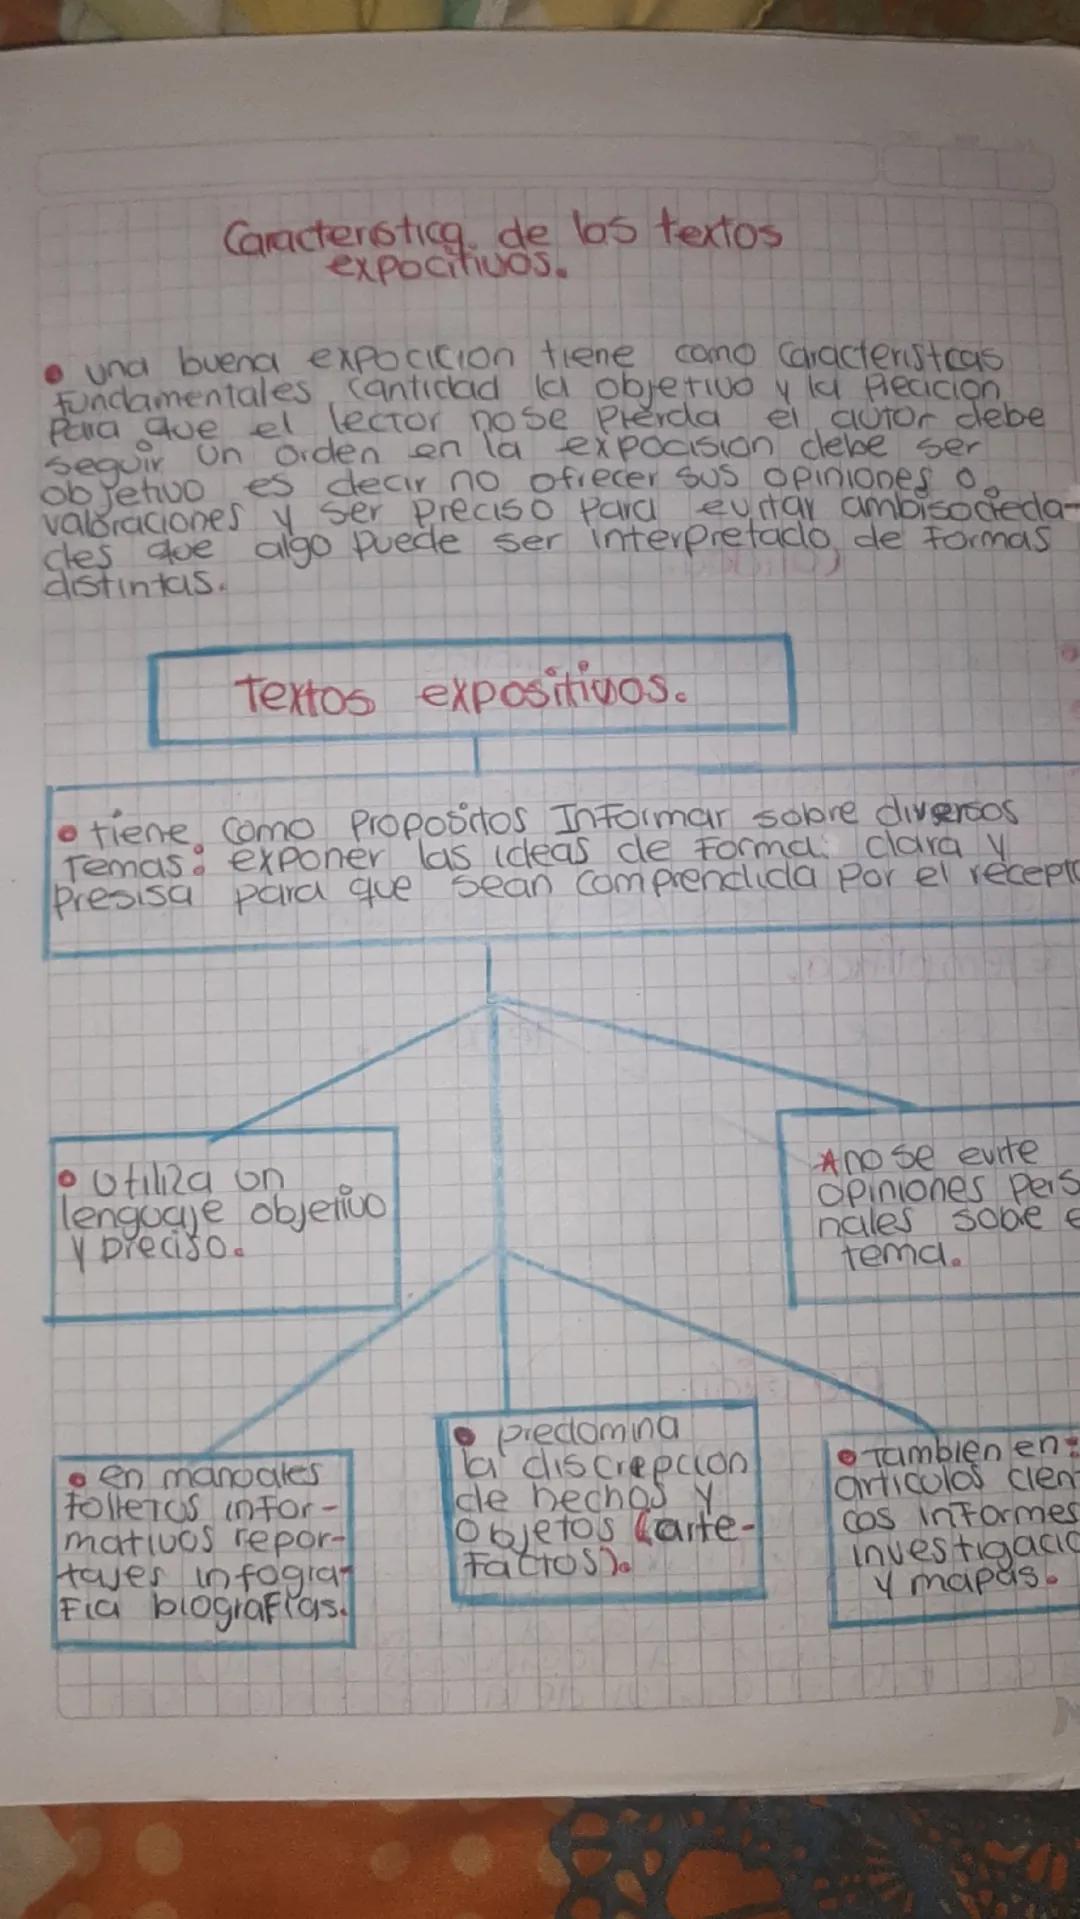 Caracteristica de los textos
expocitivos.
• una buena expocicion tiene como caracteristcas
fundamentales cantidad la objetivo y la
para que el lector no se pierda el autor debe
seguir un orden en la expocision debe ser
objetivo es decir no ofrecer sus opiniones o
valoraciones y ser preciso para evitar ambisocieda-
des que algo puede ser interpretado de formas
distintas.
Textos expositivos.
• tiene como propositos Informar sobre diversos
temas: exponer las ideas de forma clara y
presisa para que sean comprendida por el recepto
• utiliza un
lenguaje objetivo
y preciso.
* no se evite
opiniones pers
nales sobe e
tema.
• en manuales
folletos infor-
mativos repor-
tajes infogra-
fia biografias.
• predomina
la discrepcion
de hechos y
objetos (arte-
factos).
• Tambien en:
articulos cien
cos informes
investigacio
y mapas.